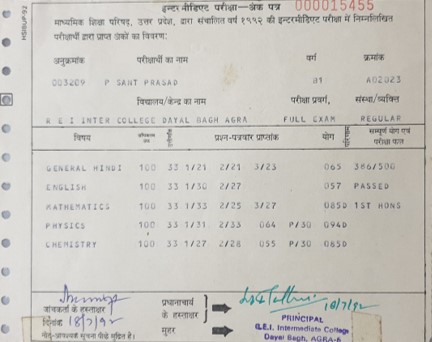 इन्टरमीडिएट परीक्षा—अंक पत्र 000015455
HSIBUP-92
माध्यमिक शिक्षा परिषद्, उत्तर प्रदेश, द्वारा संचालित वर्ष १९९२ की इन्टरमीडिएट परीक्षा में निम्नलिखित
परीक्षार्थी द्वारा प्राप्त अंकों का विवरण:
अनुक्रमांक परीक्षार्थी का नाम वर्ग क्रमांक
003209 P SANT PRASAD 01 A02023
विद्यालय/केन्द्र का नाम परीक्षा प्रवर्ग, संस्था/व्यक्ति
R E I INTER COLLEGE DAYAL BAGH AGRA FULL EXAM REGULAR
विषय प्रश्न-पत्रवार प्राप्तांक योग सम्पूर्ण योग एवं परीक्षा फल
GENERAL HINDI 100 33 1/21 2/21 3/23 065 386/500
ENGLISH 100 33 1/30 2/27 057 PASSED
MATHEMATICS 100 33 1/33 2/25 3/27 085D 1ST HONS
PHYSICS 100 33 1/31 2/33 064 P/30 094D
CHEMISTRY 100 33 1/27 2/28 055 P/30 085D
जांचकर्ता के हस्ताक्षर
प्रधानाचार्य के हस्ताक्षर
18/7/92
दिनांक 18/7/92
मुहर
PRINCIPAL
R.E.I. Intermediate College
Dayal Bagh, AGRA-5